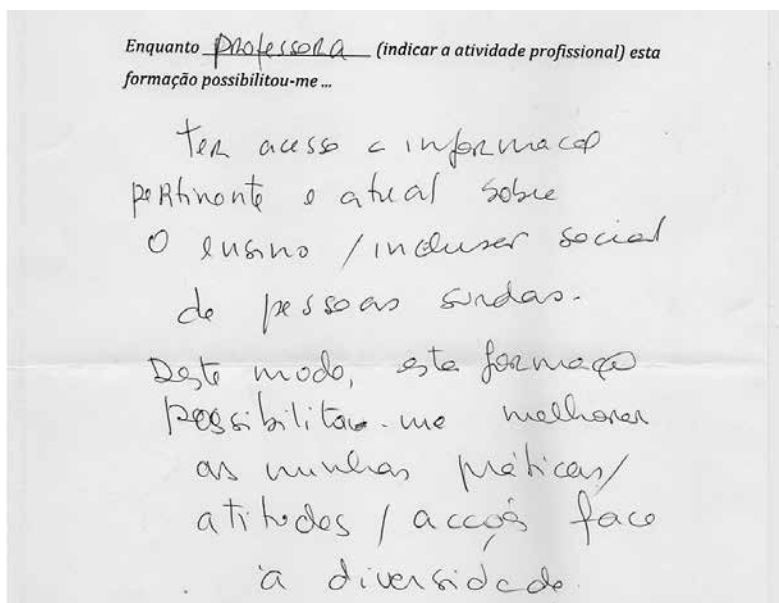 Enquanto professora (indicar a atividade profissional) esta
formação possibilitou-me ...
ter acesso a informação
pertinente e atual sobre
o ensino / inclusão social
de pessoas surdas.
Deste modo, esta formação
possibilitou-me melhorar
as minhas práticas/
atitudes / acções face
à diversidade.